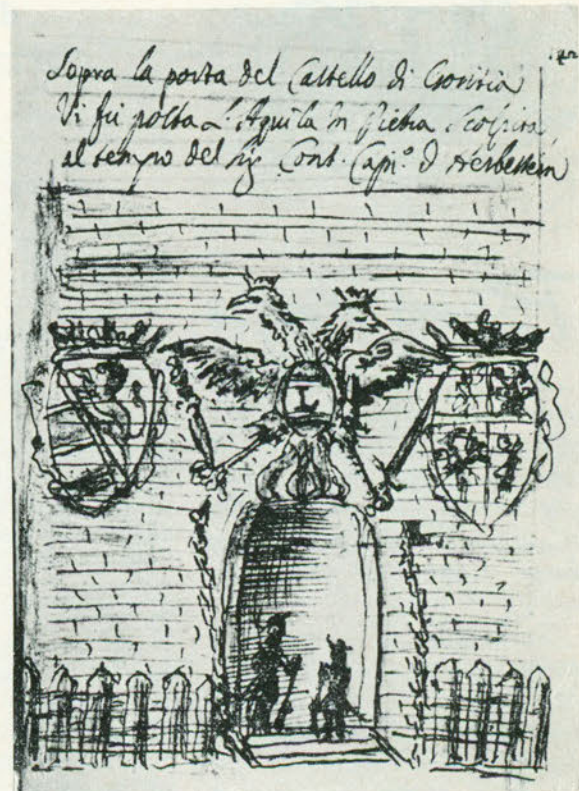 Sopra la porta del Castello di Goritia
Vi fu posta L'Aquila in Pietra Scolpita
al tempo del Sig Cont. Capi.º d Herbestein
L